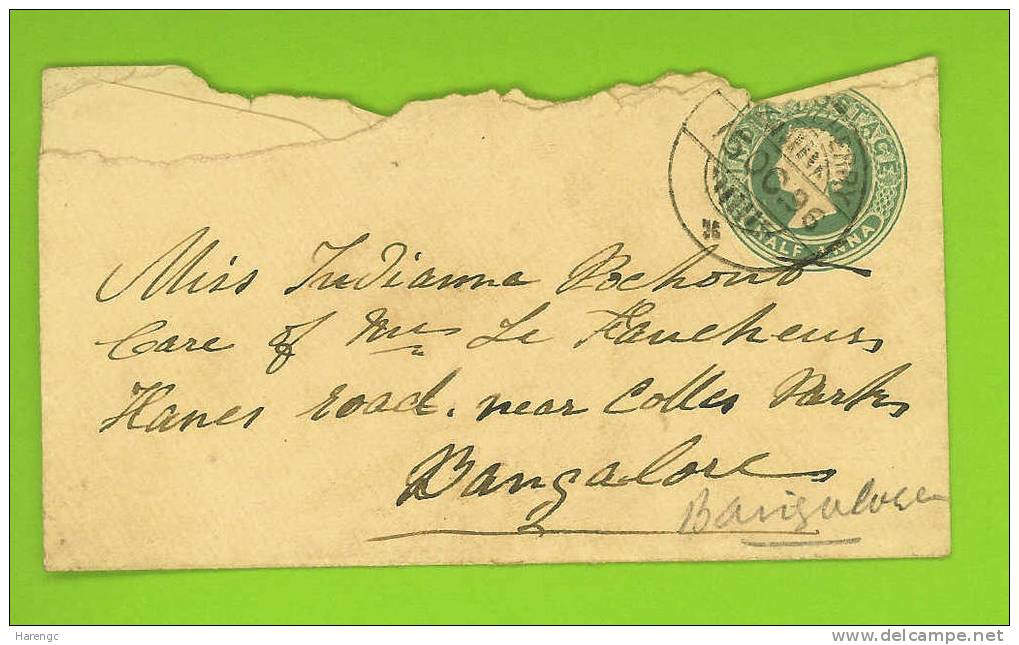 HALF ANNA
OC 96
Miss Indianna Pochont
Care of Mrs Le Faucheurs
Hanes road. near Colles Park
Bangalore
Bangalore
Harengc
http://www.delcampe.net